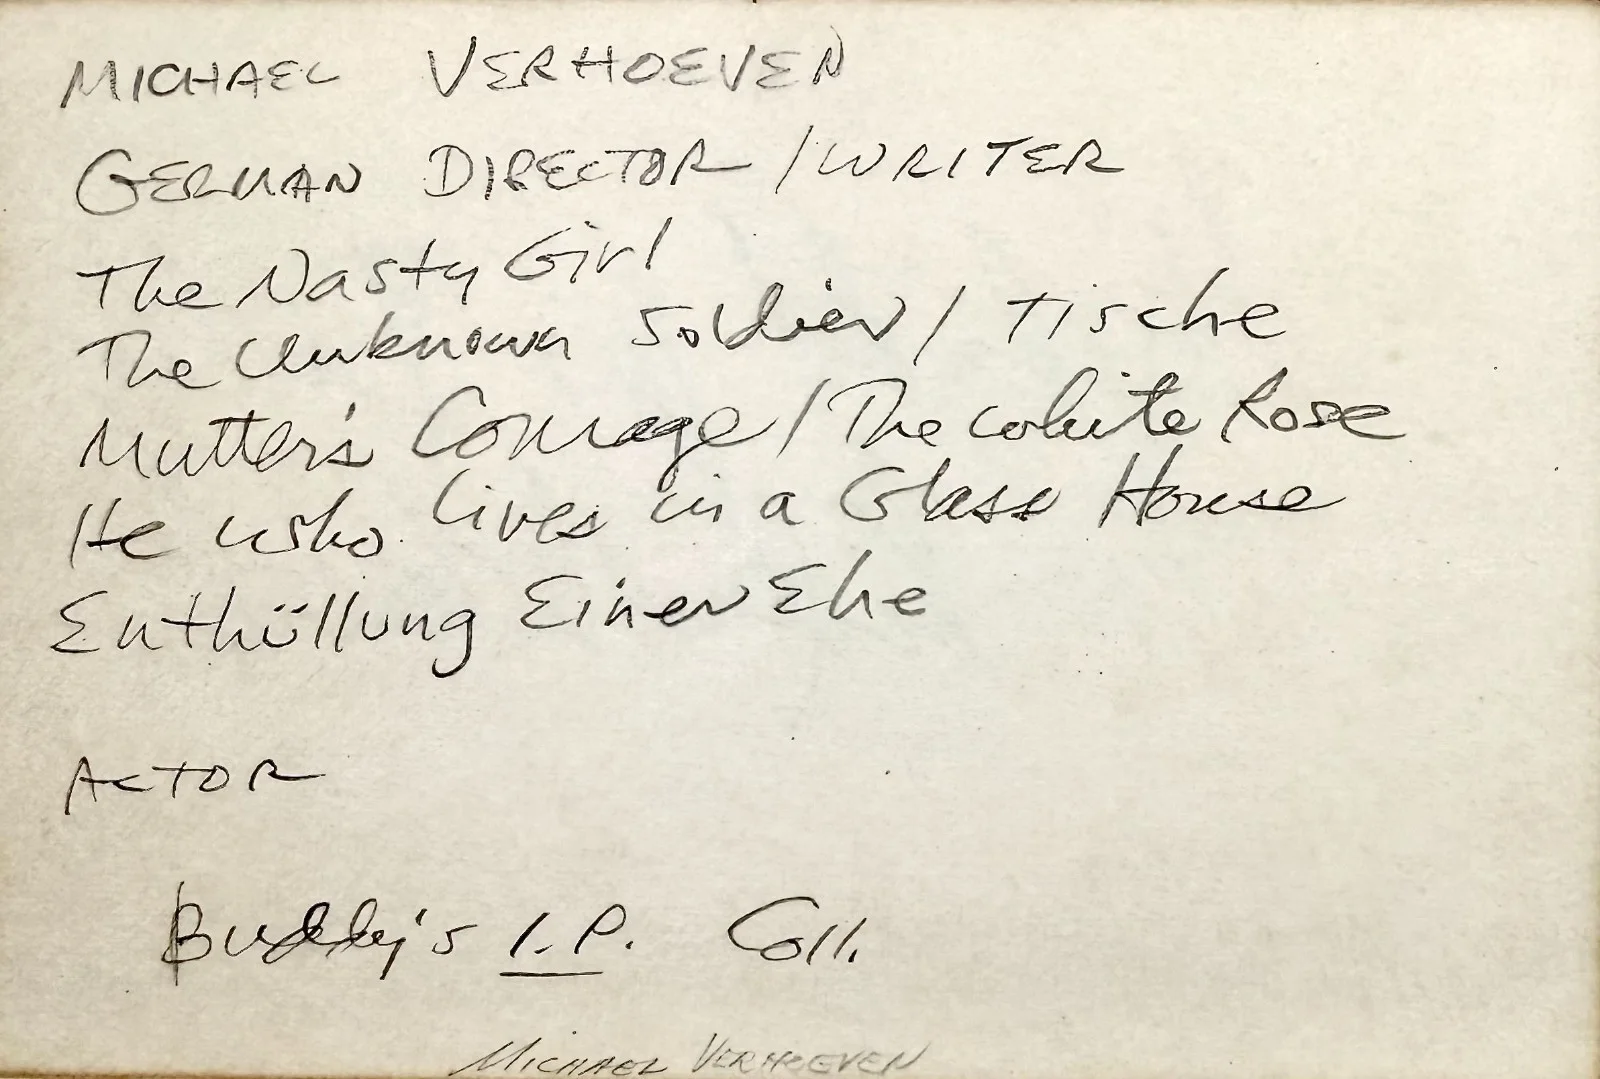 MICHAEL VERHOEVEN
GERMAN DIRECTOR / WRITER
The Nasty Girl
The Unknown Soldier / Tische
Mutter's Courage / The White Rose
He who lives in a Glass House
Enthüllung Einer Ehe
ACTOR
Buddy's I.P. Coll.
MICHAEL VERHOEVEN